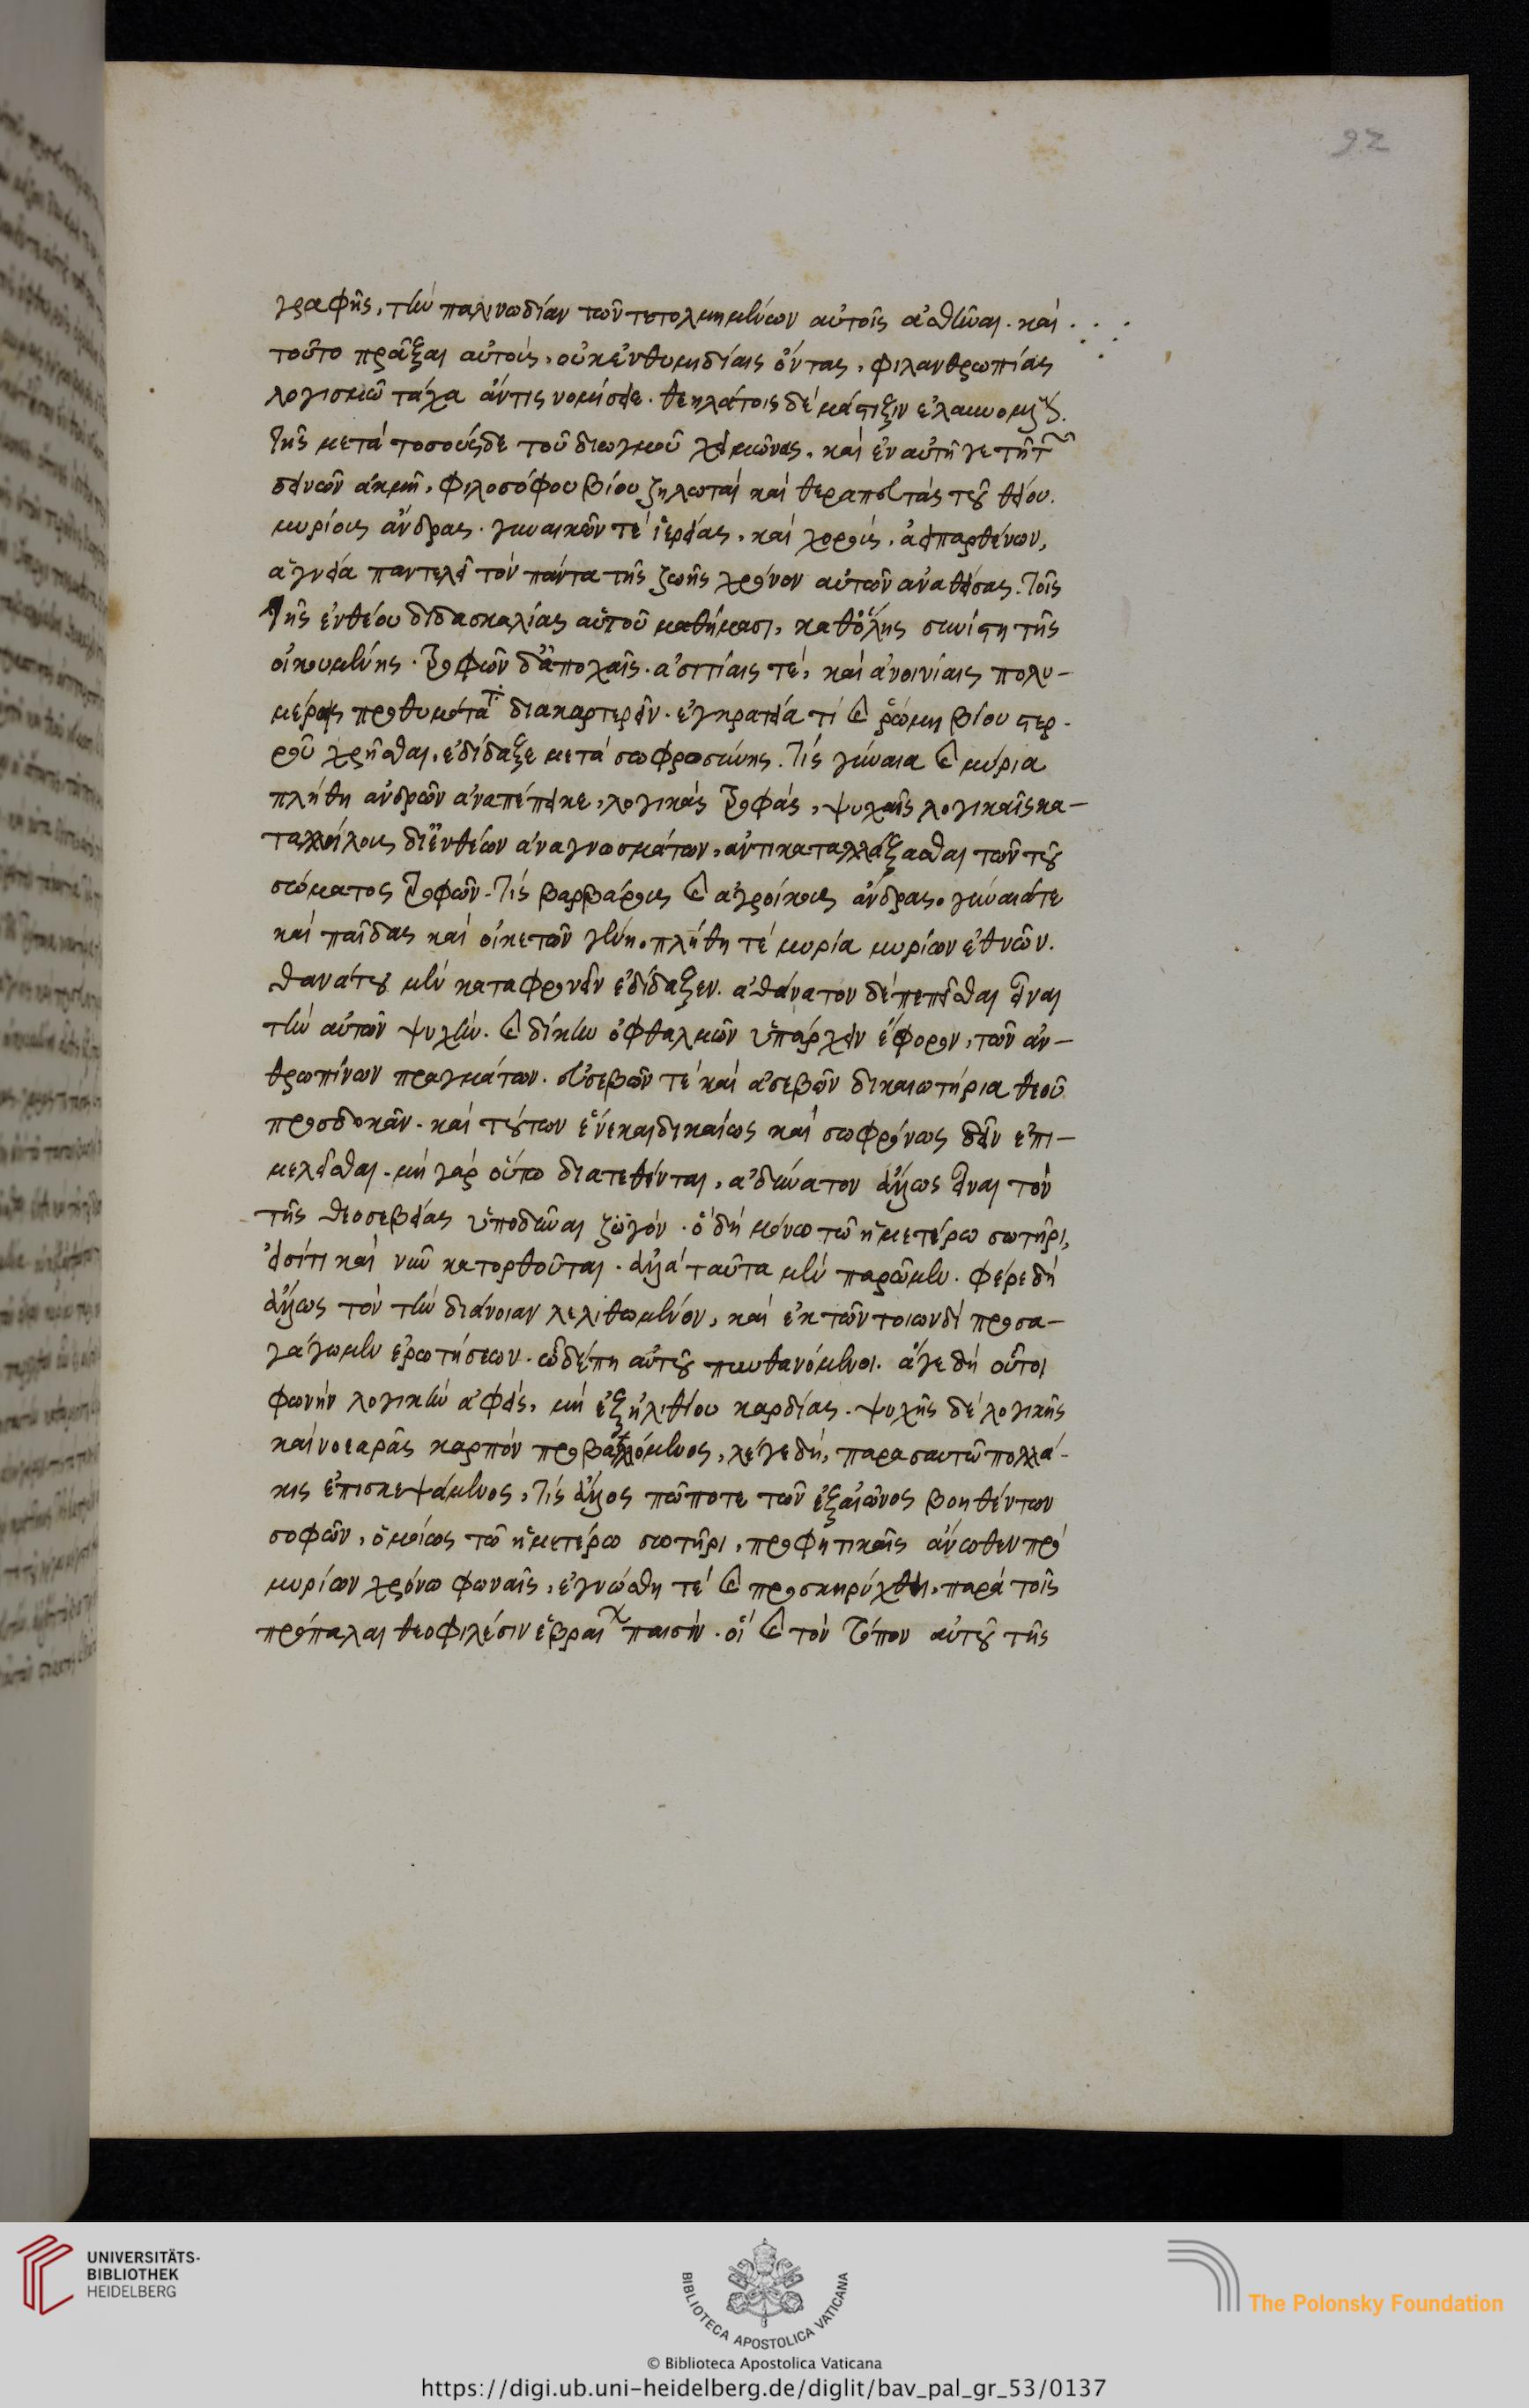 92
γραφῆς, τὴν παλινωδίαν τῶν τετολμημένων αὐτοῖς ἀσθῆναι. καὶ
τοῦτο πρᾶξαι αὐτοὺς, οὐκ ἐνθυμηδίαις ὄντας, φιλανθρωπίας
λογισμῶ τάχα ἄν τις νομίσειε. θεηλάτοις δὲ μάστιξιν ἐλαυνομένους.
Τίς μετὰ τοσούσδε τοῦ διωγμοῦ χειμῶνας, καὶ ἐν αὐτῆ γε τῆ τῶν
δεινῶν ἀκμῆ, φιλοσόφου βίου ζηλωταὶ καὶ θεραπευτὰς τοῦ θείου.
μυρίους ἄνδρας. γυναικῶν τὲ ἱερείας, καὶ χοροὺς, ἀειπαρθένων,
ἁγνεία παντελεῖ τὸν πάντα τῆς ζωῆς χρόνον αὐτῶν ἀναθείσας. Τοῖς
τῆς ἐνθέου διδασκαλίας αὐτοῦ μαθήμασι, καθόλης συνίστη τῆς
οἰκουμένης. τροφῶν δ' ἀποχαῖς. ἀσιτίαις τὲ, καὶ ἀνοινίαις πολυ-
μέροις προθυμότατα διακαρτερεῖν. ἐγκρατεία τὶ καὶ ῥώμη βίου στερ-
ροῦ χρῆσθαι, ἐδίδαξε μετὰ σωφροσύνης. Τίς γύναια καὶ μύρια
πλήθη ἀνδρῶν ἀναπέπεικε, λογικὰς τροφὰς, ψυχαῖς λογικαῖς κα-
ταλλήλους δι' ἐνθέων ἀναγνωσμάτων, ἀντικαταλλάξασθαι τῶν τοῦ
σώματος τροφῶν. Τίς βαρβάρους καὶ ἀγροίκους ἄνδρας. γύναιά τε
καὶ παῖδας καὶ οἰκετῶν γένη. πλήθη τὲ μυρία μυρίων ἐθνῶν.
θανάτου μὲν καταφρονεῖν ἐδίδαξεν. ἀθάνατον δὲ πεπεῖσθαι εἶναι
τὴν αὐτῶν ψυχὴν. καὶ δίκην ὀφθαλμῶν ὑπάρχειν ἔφορον, τῶν ἀν-
θρωπίνων πραγμάτων. εὐσεβῶν τὲ καὶ ἀσεβῶν δικαιωτήρια θεοῦ
προσδοκᾶν. καὶ τούτων ἕνεκα δικαίως καὶ σωφρόνως δεῖν ἐπι-
μελεῖσθαι. μὴ γὰρ οὕτω διατεθένται, ἀδύνατον ἄλλως εἶναι τὸν
τῆς θεοσεβείας ὑποδῦναι ζυγόν. ὃ δὴ μόνω τῶ ἡμετέρω σωτῆρι,
εἰσέτι καὶ νῦν κατορθοῦται. ἀλλὰ ταῦτα μὲν παρῶμεν. φέρε δὴ
ἄλλως τὸν τὴν διάνοιαν λελιθωμένον, καὶ ἐκ τῶν τοιωνδὶ προσα-
γάγωμεν ἐρωτήσεων. ὧδέ πη αὐτοῦ πυνθανόμενοι. ἄγε δὴ οὗτοι
φωνὴν λογικὴν ἀφεὶς, μὴ ἐξ ἠλιθίου καρδίας. ψυχῆς δὲ λογικῆς
καὶ νοεαρᾶς καρπὸν προβαλλόμενος, λέγε δὴ, παρὰ σαυτῶ πολλά-
κις ἐπισκεψάμενος, Τίς ἄλλος πώποτε τῶν ἐξ αἰῶνος βοηθέντων
σοφῶν, ὁμοίως τῶ ἡμετέρω σωτῆρι, προφητικαῖς ἄνωθεν πρὸ
μυρίων χρόνω φωναῖς, ἐγνώσθη τὲ καὶ προσκηρύχθη, παρὰ τοῖς
πρόπαλαι θεοφιλέσιν ἑβραίων παισὶν. οἳ καὶ τὸν τόπον αὐτοῦ τῆς
UNIVERSITÄTS-
BIBLIOTHEK
HEIDELBERG
BIBLIOTECA APOSTOLICA VATICANA
The Polonsky Foundation
© Biblioteca Apostolica Vaticana
https://digi.ub.uni-heidelberg.de/diglit/bav_pal_gr_53/0137